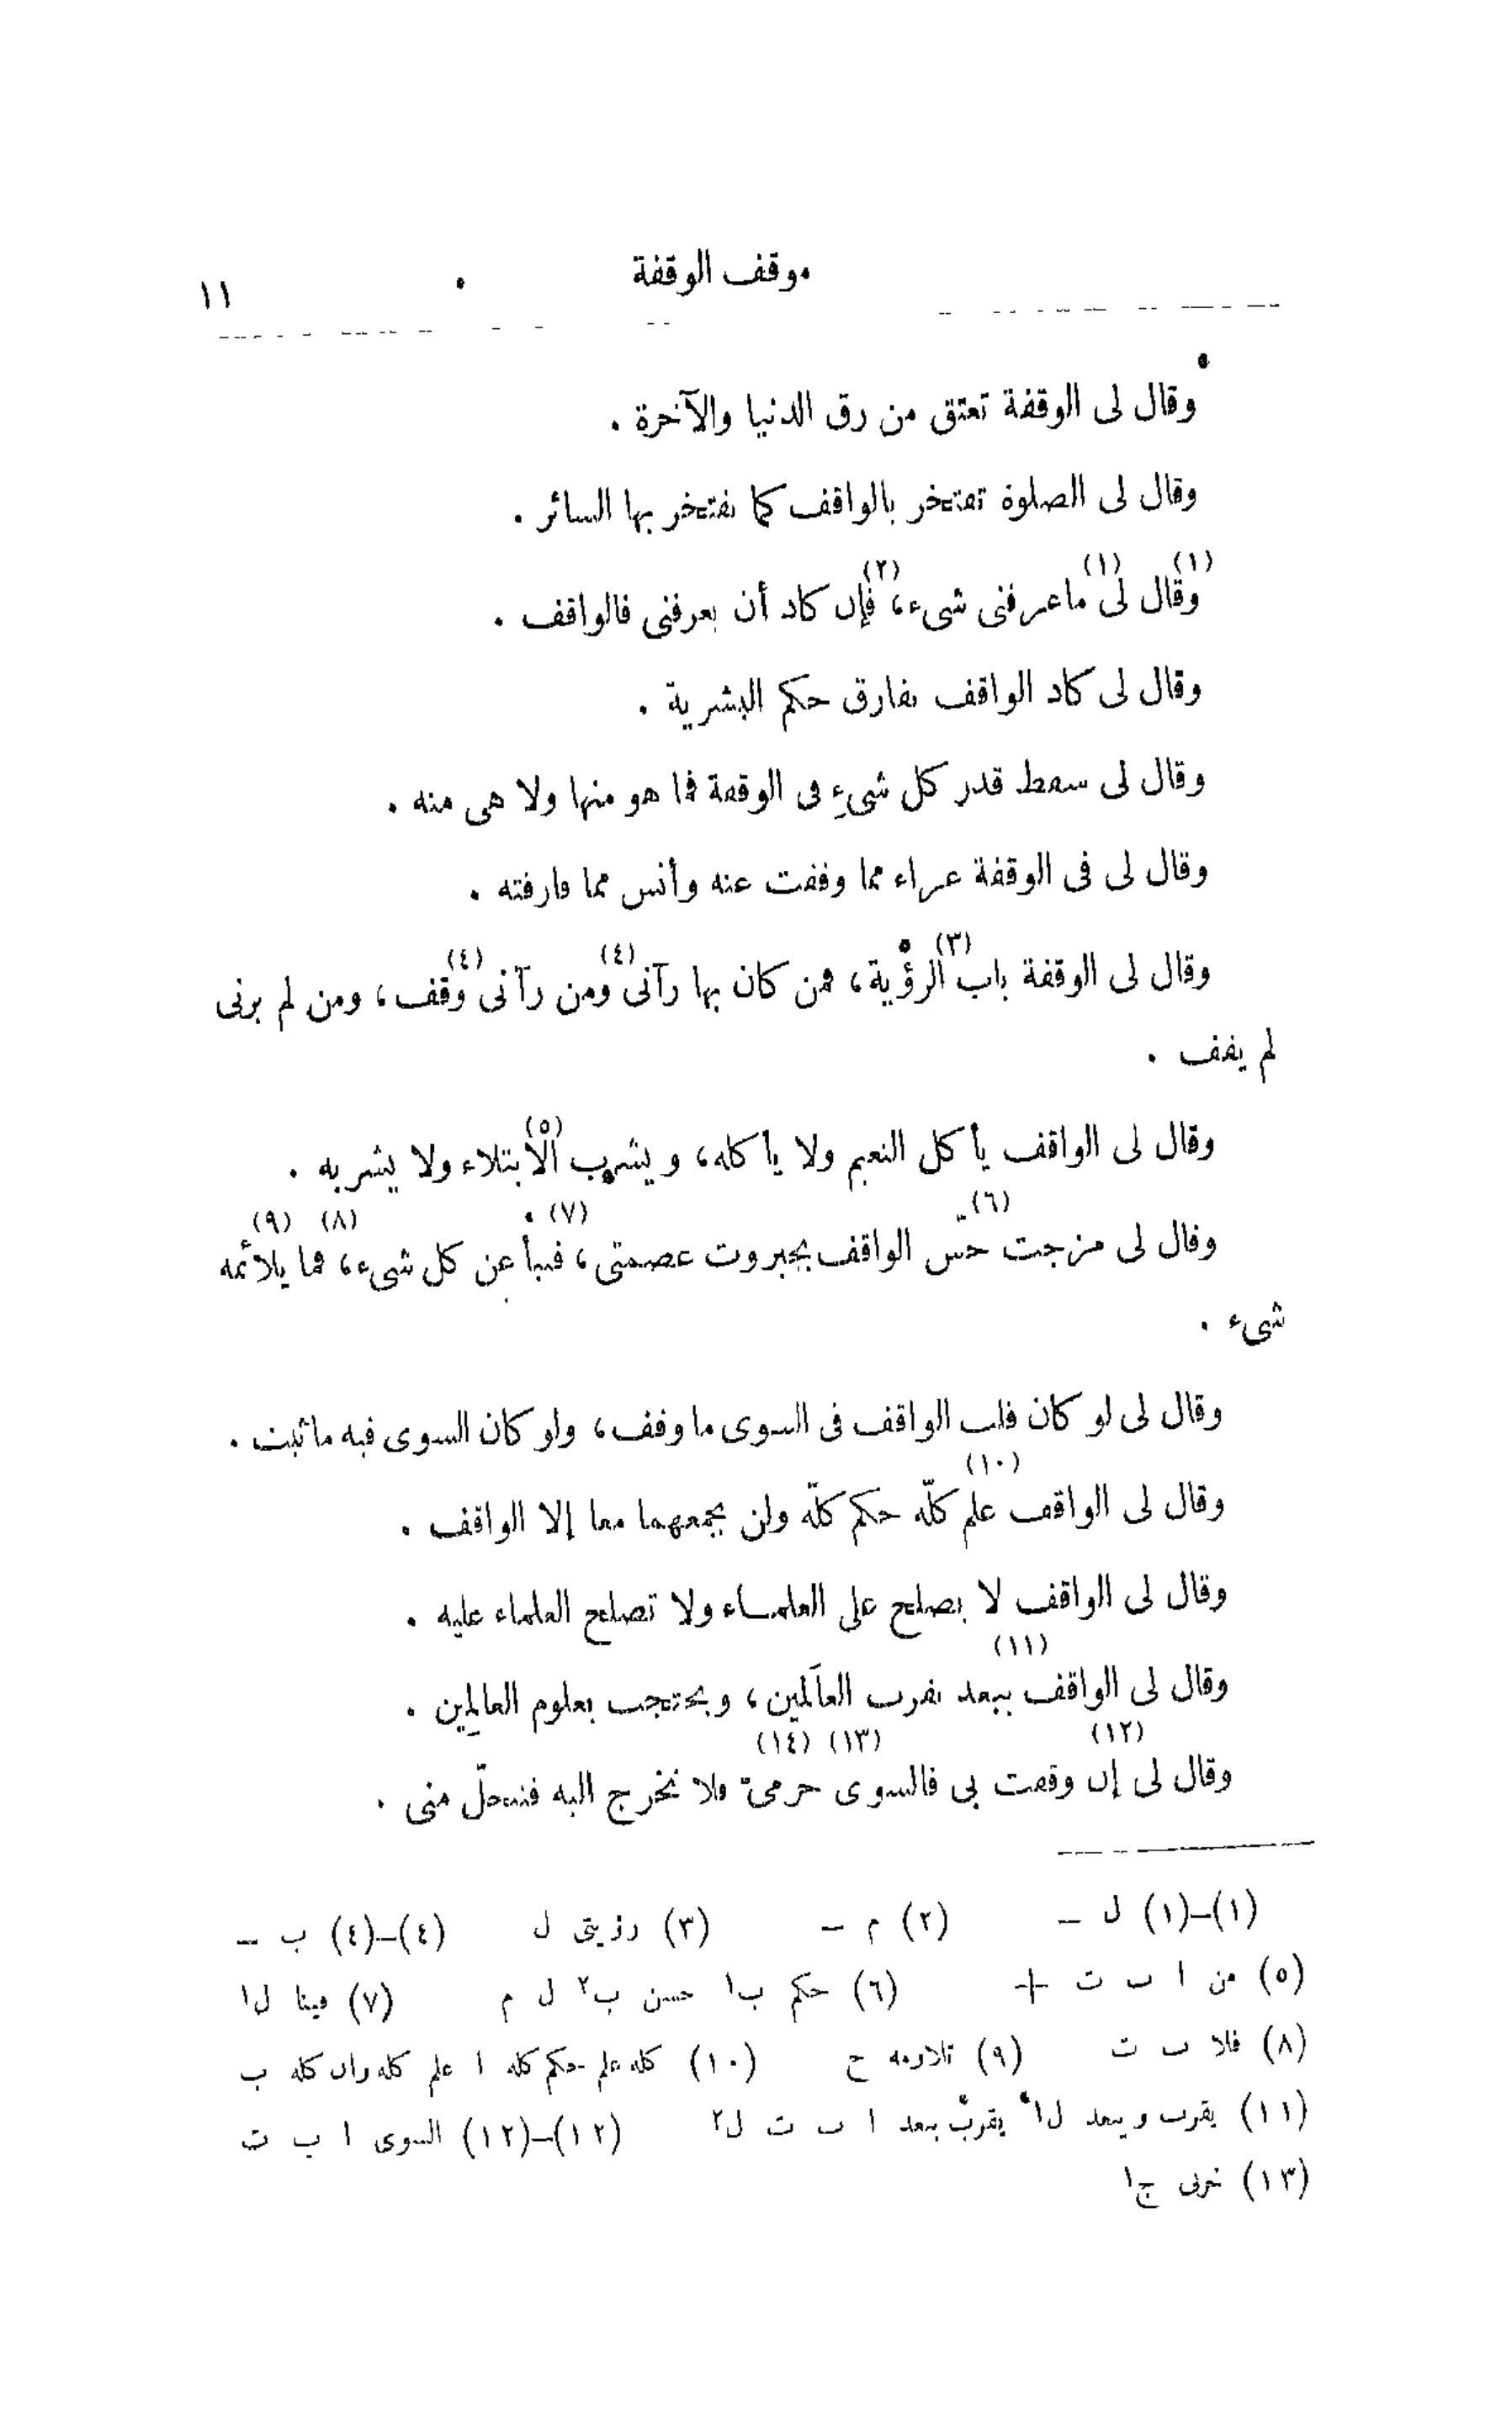 موقف الوقفة
١١
وقال لى الوقفة تعتق من رق الدنيا والآخرة .
وقال لى الصلوة تفتخر بالواقف كما يفتخر بها السائر .
(١) (١) (٢)
وقال لى ما عرفنى شىء، فإن كاد أن يعرفنى فالواقف .
وقال لى كاد الواقف يفارق حكم البشرية .
وقال لى سقط قدر كل شىءٍ فى الوقفة فما هو منها ولا هى منه .
وقال لى فى الوقفة عزاء مما وقفت عنه وأنس مما فارقته .
(٣) (٤) (٤)
وقال لى الوقفة باب الرؤية، فمن كان بها رآنى ومن رآنى وقف، ومن لم يرنى
لم يقف .
(٥)
وقال لى الواقف يأكل النعيم ولا يأكله، ويشرب الابتلاء ولا يشربه .
(٦) (٧) (٨) (٩)
وقال لى مزجت حس الواقف بجبروت عصمتى، فنبأ عن كل شىء، فما يلائمه
شىء .
وقال لى لو كان قلب الواقف فى السوى ما وقف، ولو كان السوى فيه ما ثبت .
(١٠)
وقال لى الواقف علم كلّه حكم كلّه ولن يجمعهما معا إلا الواقف .
وقال لى الواقف لا يصلح على العلماء ولا تصلح العلماء عليه .
(١١)
وقال لى الواقف يبعد بقرب العالَمين، ويحتجب بعلوم العالِمين .
(١٢) (١٣) (١٤)
وقال لى إن وقفت بى فالسوى حرمى فلا تخرج اليه فتنحلّ منى .
(١)–(١) ل – (٢) م – (٣) رؤيتى ل (٤)–(٤) ب –
(٥) من ا ب ت + (٦) حكم ب١ حسن ب٢ ل م (٧) فينا ل١
(٨) فلا ب ت (٩) تلازمه ج (١٠) كله علم حكم كله ا علم كله وان كله ب
(١١) يقرب ويبعد ل١ يقربْ يبعد ا ب ت ل٢ (١٢)–(١٢) السوى ا ب ت
(١٣) ج١